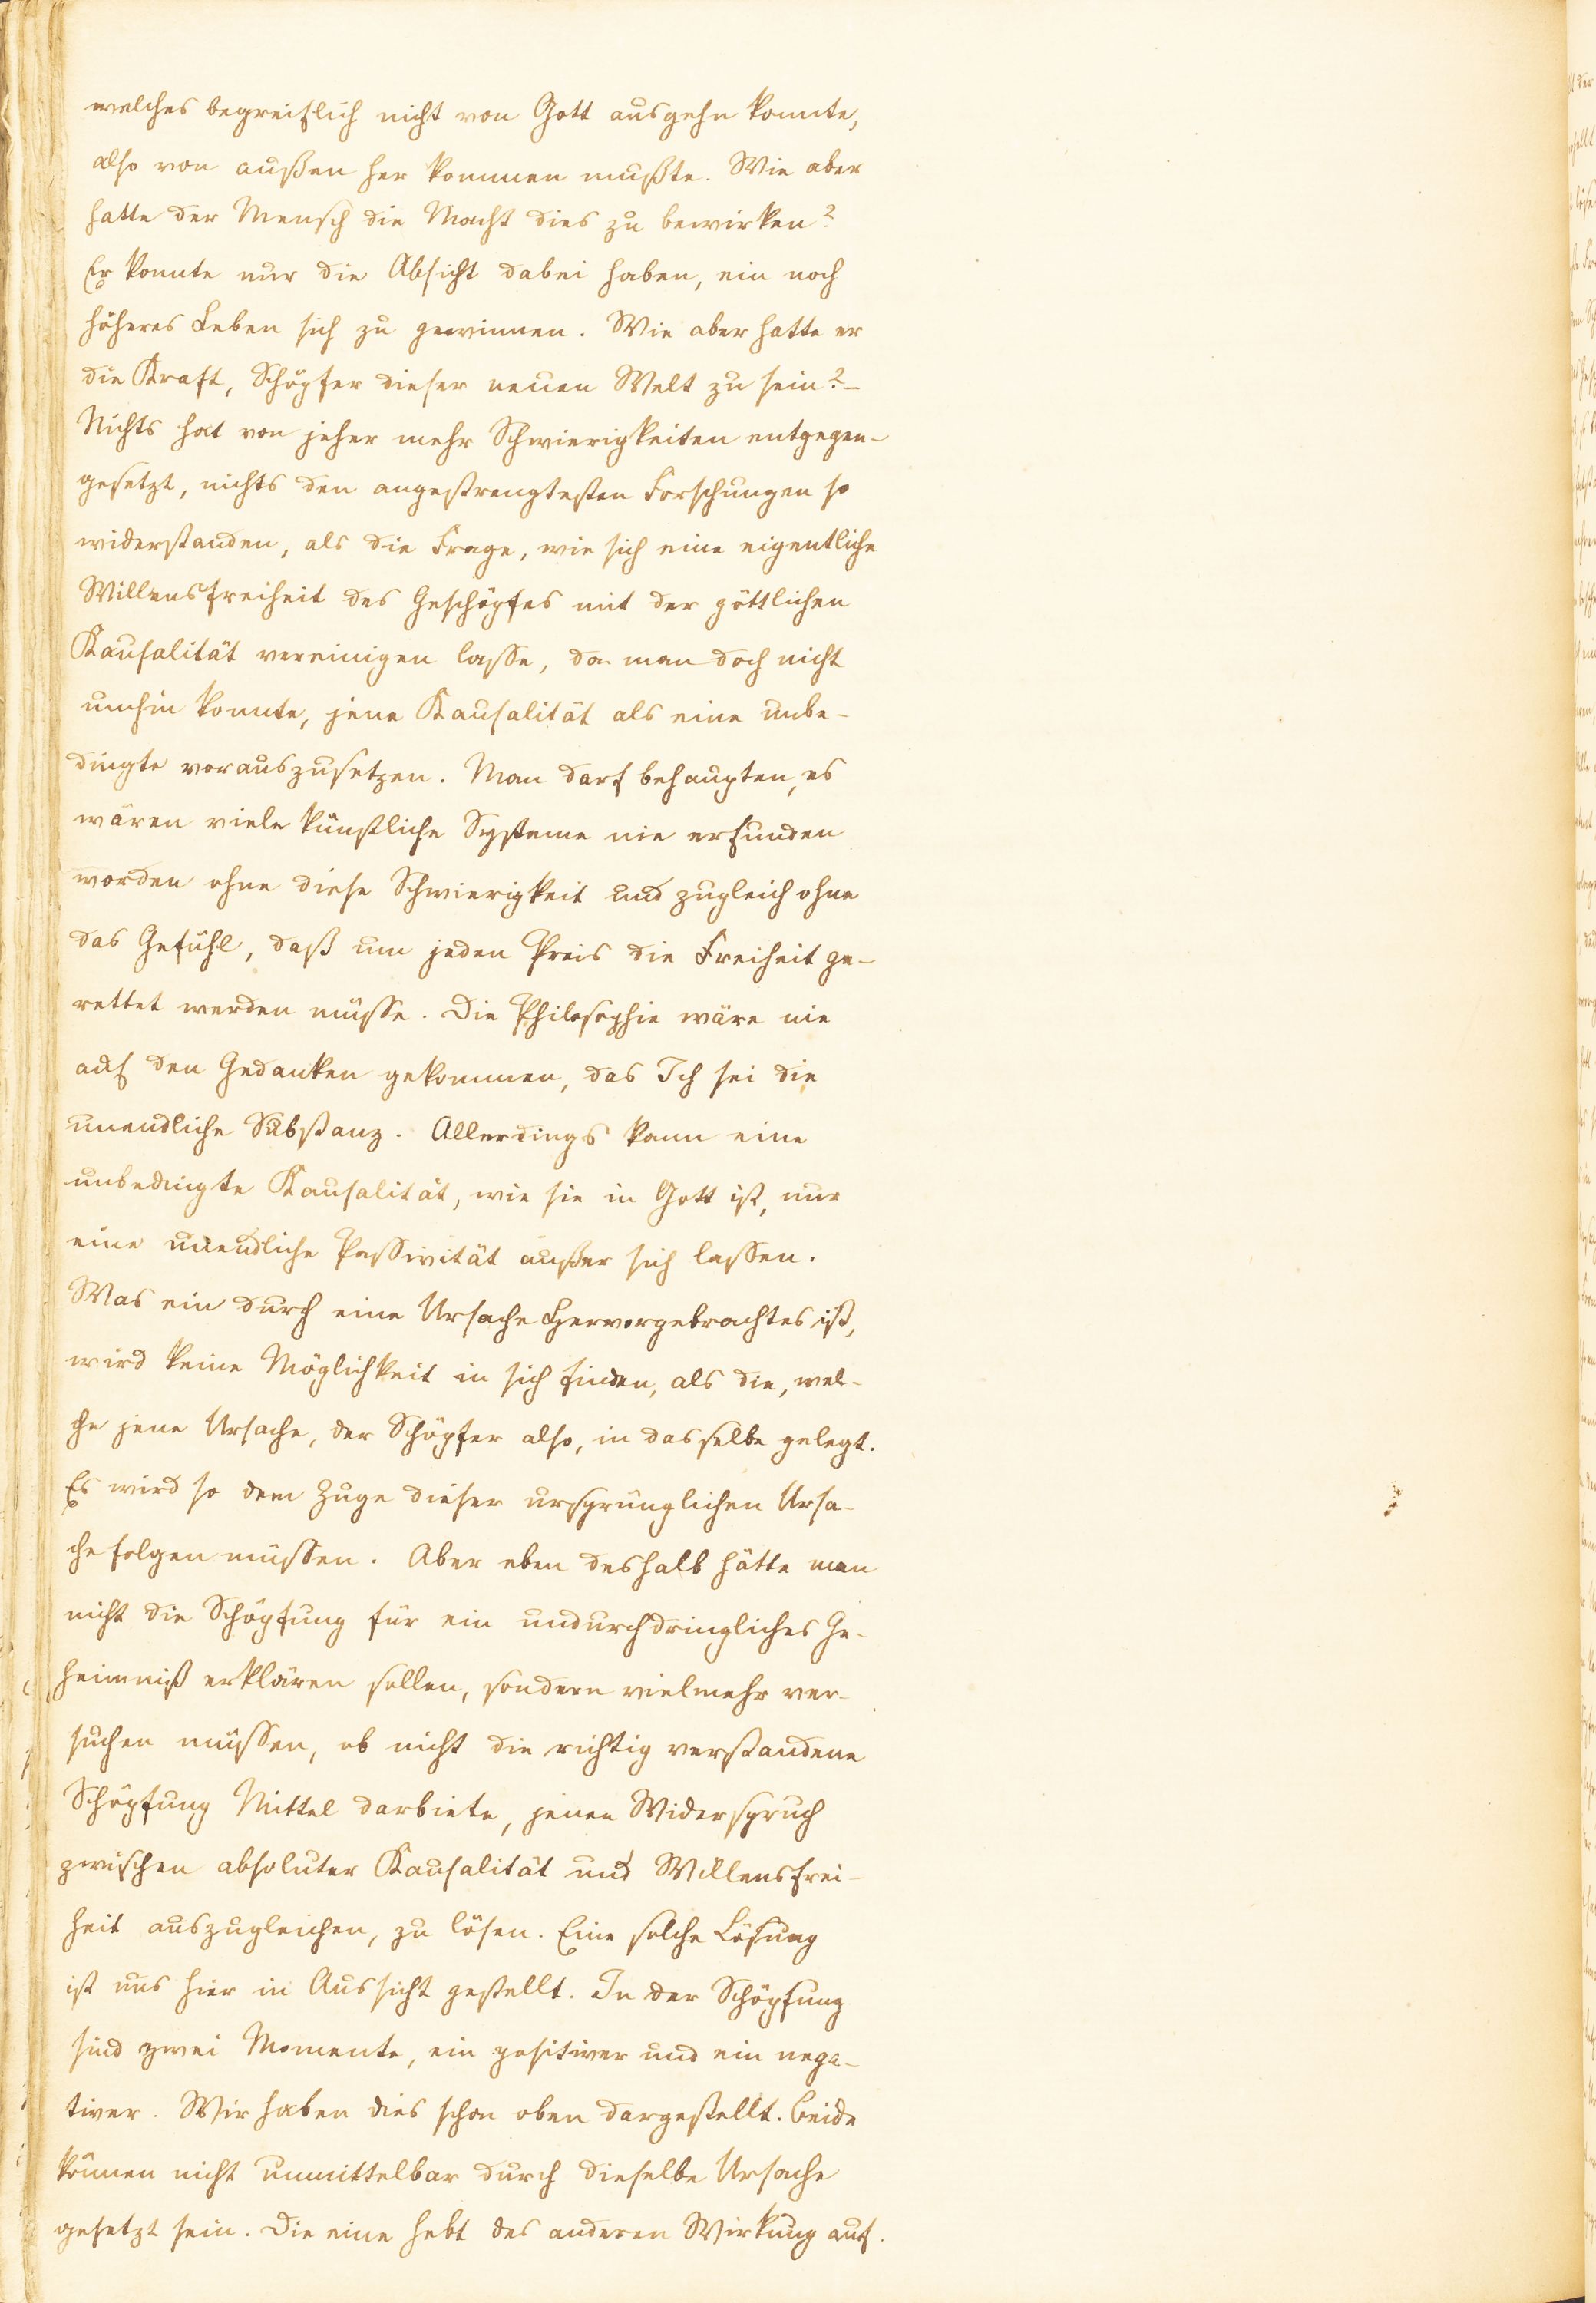 welches begreiflich nicht von Gott ausgehn konnte,
also von außen her kommen mußte. Wie aber
hatte der Mensch die Macht dies zu bewirken?
Er konnte nur die Absicht dabei haben, ein noch
höheres Leben sich zu gewinnen. Wie aber hatte er
die Kraft, Schöpfer dieser neuen Welt zu sein? –
Nichts hat von jeher mehr Schwierigkeiten entgegen-
gesetzt, nichts den angestrengtesten Forschungen so
widerstanden, als die Frage, wie sich eine eigentliche
Willensfreiheit des Geschöpfes mit der göttlichen
Kausalität vereinigen lasse, da man doch nicht
umhin konnte, jene Kausalität als eine unbe-
dingte vorauszusetzen. Man darf behaupten, es
wären viele künstliche Systeme nie erfunden
worden ohne diese Schwierigkeit und zugleich ohne
das Gefühl, daß um jeden Preis die Freiheit ge-
rettet werden müsse. Die Philosophie wäre nie
auf den Gedanken gekommen, das Ich sei die
unendliche Substanz. Allerdings kann eine
unbedingte Kausalität, wie sie in Gott ist, nur
eine unendliche Passivität außer sich lassen.
Was ein durch eine Ursache Hervorgebrachtes ist,
wird keine Möglichkeit in sich finden, als die, wel-
che jene Ursache, der Schöpfer also, in dasselbe gelegt.
Es wird so dem Zuge dieser ursprünglichen Ursa-
che folgen müssen. Aber eben deshalb hätte man
nicht die Schöpfung für ein undurchdringliches Ge-
heimniß erklären sollen, sondern vielmehr ver-
suchen müssen, ob nicht die richtig verstandene
Schöpfung Mittel darbiete, jenen Widerspruch
zwischen absoluter Kausalität und Willensfrei-
heit auszugleichen, zu lösen. Eine solche Lösung
ist uns hier in Aussicht gestellt. In der Schöpfung
sind zwei Momente, ein positiver und ein nega-
tiver. Wir haben dies schon oben dargestellt. Beide
können nicht unmittelbar durch dieselbe Ursache
gesetzt sein. Die eine hebt des anderen Wirkung auf.